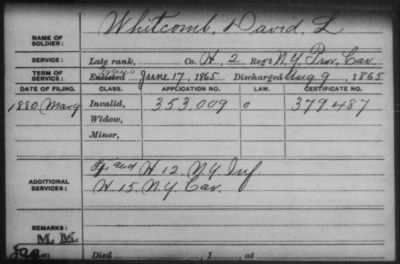 NAME OF SOLDIER: Whitcomb, David L
SERVICE: Late rank, Co. H, 2 Reg't N.Y. Prov. Cav.
TERM OF SERVICE: Enlisted June 17, 1865 Discharged Aug 9, 1865
DATE OF FILING. CLASS. APPLICATION NO. LAW. CERTIFICATE NO.
1880 Mar 9 Invalid, 353.009 0 379.487
Widow,
Minor,
ADDITIONAL SERVICES: and H. 12. N.Y. Inf.
H. 15. N.Y. Cav.
REMARKS:
M. M.
Died , 1 , at